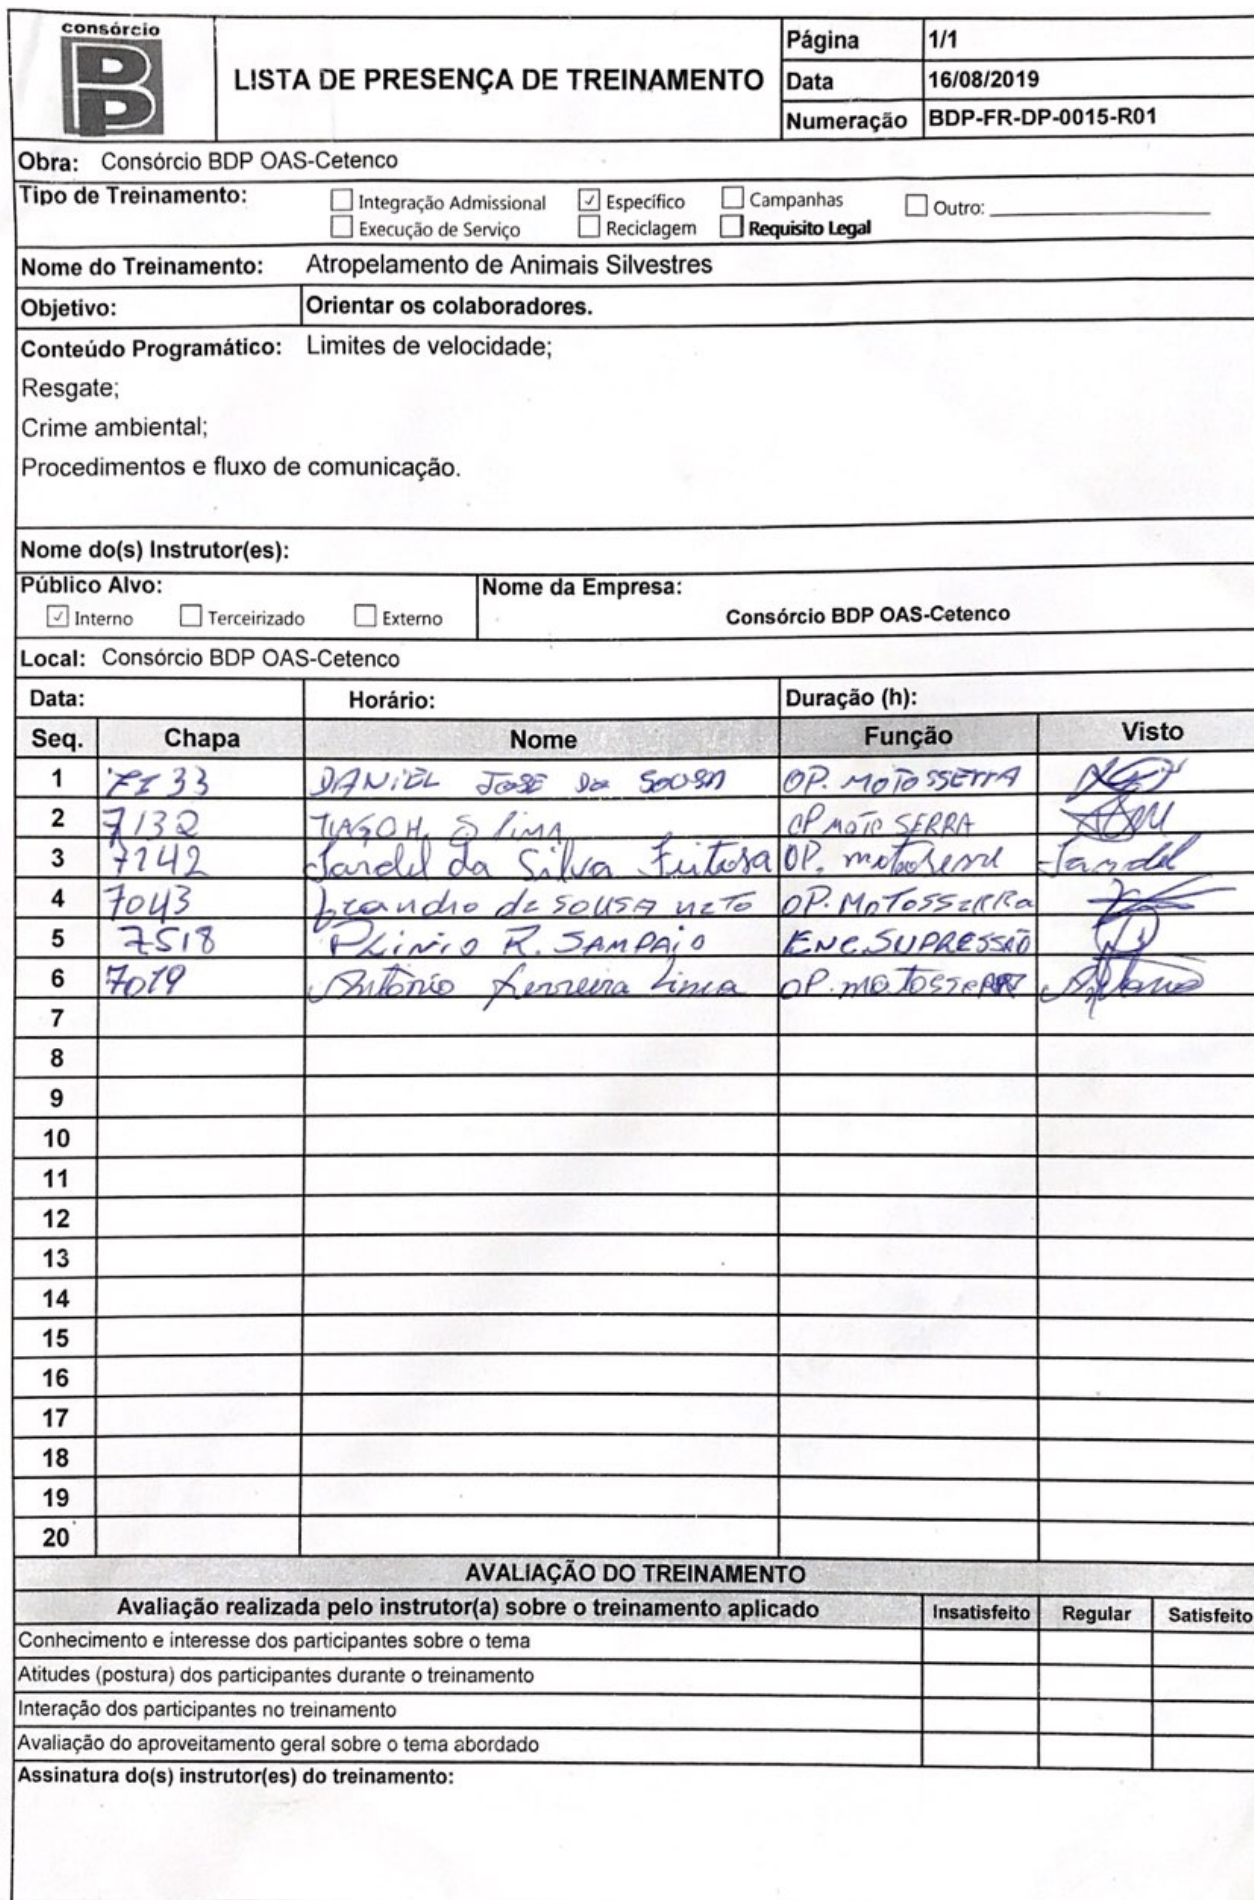 consórcio
BP
LISTA DE PRESENÇA DE TREINAMENTO
Página 1/1
Data 16/08/2019
Numeração BDP-FR-DP-0015-R01
Obra: Consórcio BDP OAS-Cetenco
Tipo de Treinamento:
Integração Admissional Específico Campanhas Outro:
Execução de Serviço Reciclagem Requisito Legal
Nome do Treinamento: Atropelamento de Animais Silvestres
Objetivo: Orientar os colaboradores.
Conteúdo Programático: Limites de velocidade;
Resgate;
Crime ambiental;
Procedimentos e fluxo de comunicação.
Nome do(s) Instrutor(es):
Público Alvo: Nome da Empresa:
Interno Terceirizado Externo Consórcio BDP OAS-Cetenco
Local: Consórcio BDP OAS-Cetenco
Data: Horário: Duração (h):
Seq. Chapa Nome Função Visto
1 7133 DANIEL JOSE DE SOUSA OP. MOTOSSERRA
2 7132 TIAGO H. S LIMA OP MOTO SERRA
3 7142 Jardel da Silva Feitosa OP. Jardel
4 7043 de SOUSA NETO OP. MOTOSSERRA
5 7518 PLINIO R. SAMPAIO ENC. SUPRESSÃO
6 7019 Antônio Ferreira Lima OP. MOTOSSERRA
7
8
9
10
11
12
13
14
15
16
17
18
19
20
AVALIAÇÃO DO TREINAMENTO
Avaliação realizada pelo instrutor(a) sobre o treinamento aplicado Insatisfeito Regular Satisfeito
Conhecimento e interesse dos participantes sobre o tema
Atitudes (postura) dos participantes durante o treinamento
Interação dos participantes no treinamento
Avaliação do aproveitamento geral sobre o tema abordado
Assinatura do(s) instrutor(es) do treinamento: